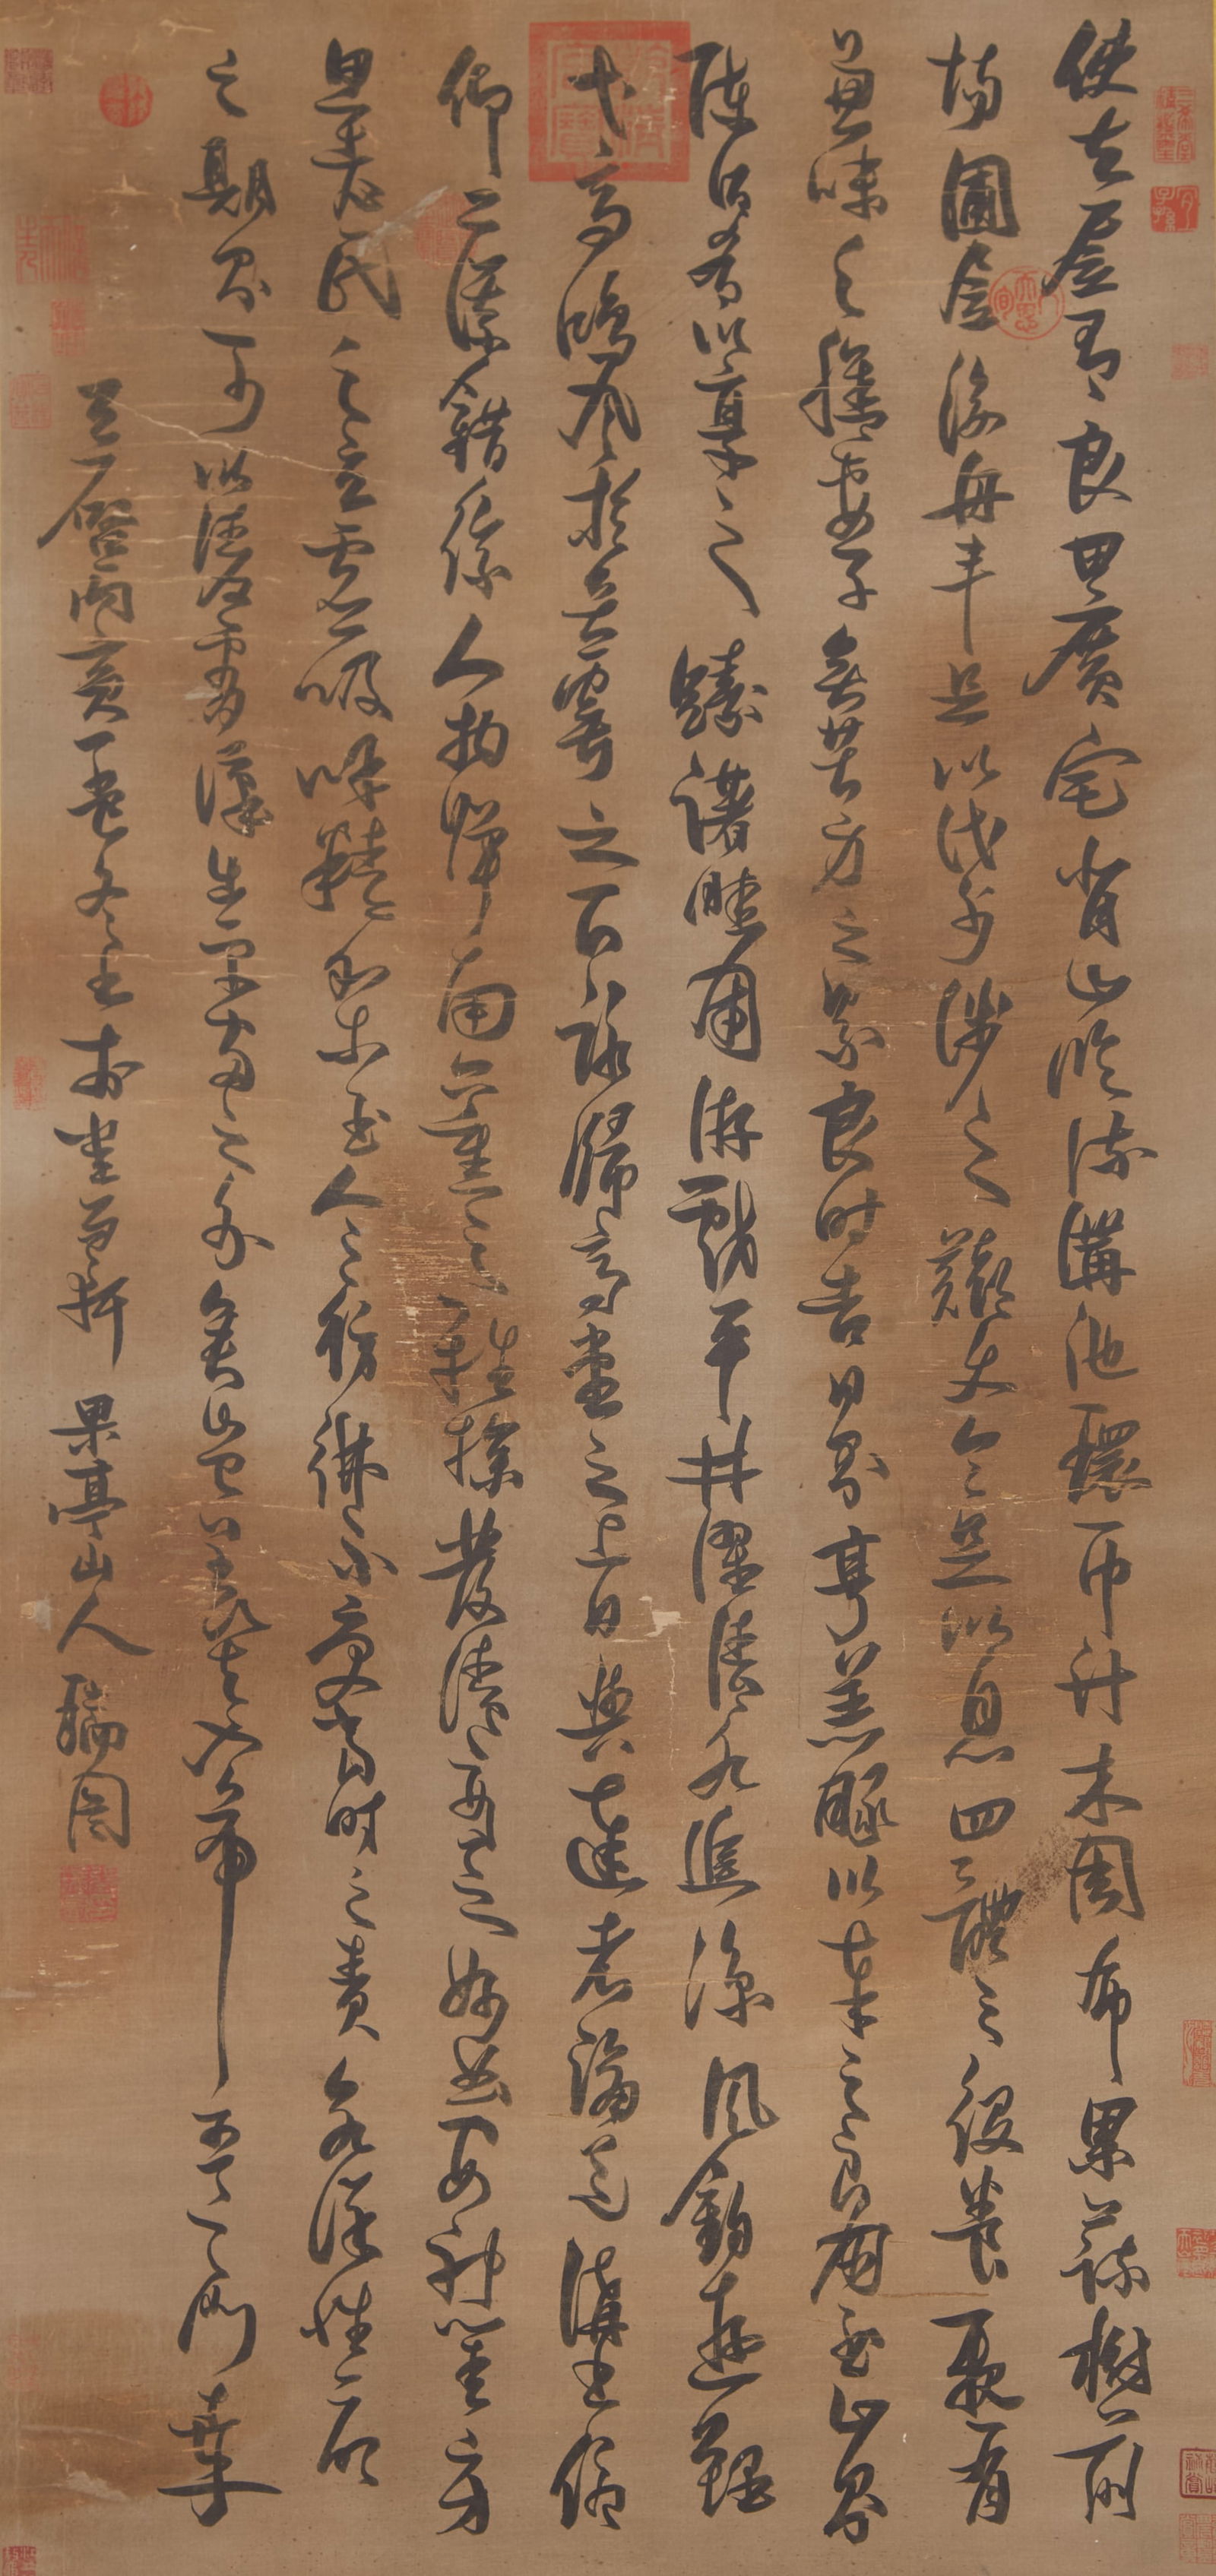 使居有良田廣宅背山臨流溝池環匝竹木周布果蔬樹前
場圃居後舟車足以代步涉之難使令足以息四體之役養親有
兼味之膳妻子無苦身之勞良時吉日則亨羔豚以奉之良朋至止則
陳酒肴以享之躊躇畦圃游戲平林濯清水追涼風釣遊鯉
弋高鴻風於舞雩之下詠歸高堂之上日與達者論道講書俯
仰二儀錯綜人物彈南薰之雅操發清商之妙曲安神閨房
思老氏之玄虛吸呼精和求至人之彷彿不受當時之責永保性命
之期則可以凌霄漢出宇宙之外矣豈羨夫入帝王之門哉
天啟丙寅 冬 書 軒 果亭山人瑞圖